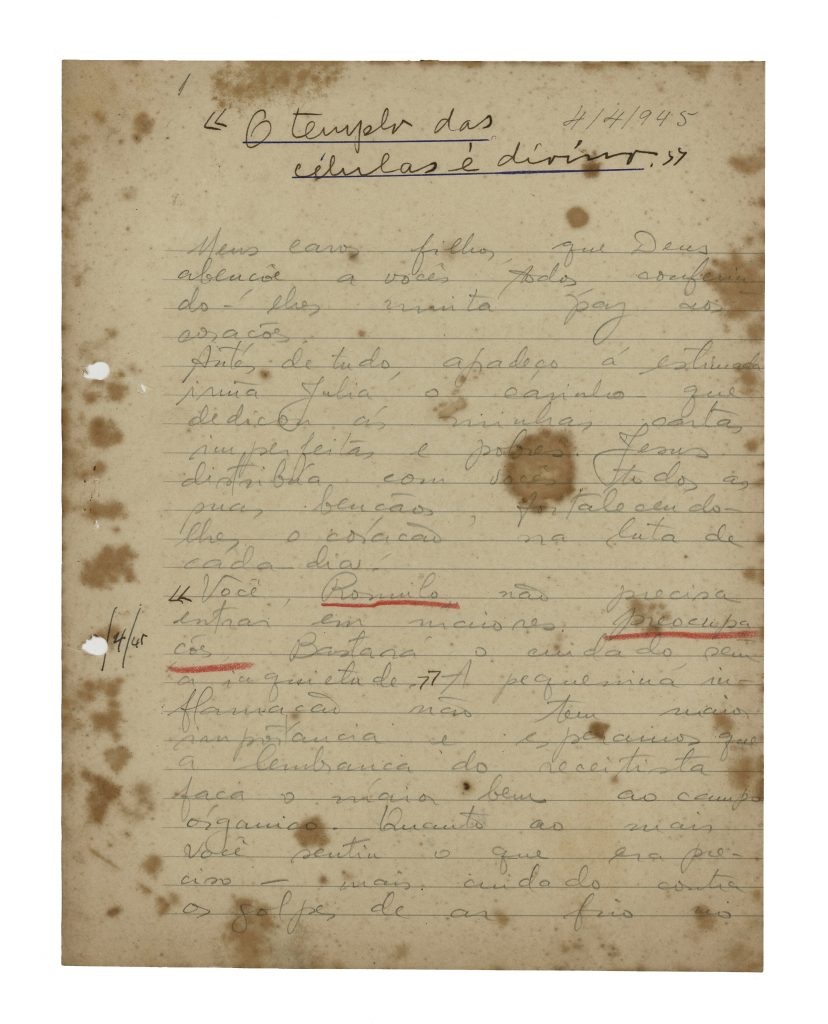 1
« O templo das
4/4/945
células é divino. »
Meus caros filhos, que Deus
abençôe a vocês todos, conferin
do-lhes muita paz aos
corações.
Antes de tudo, agradeço á estimada
irmã Julia o carinho que
dedicou ás minhas cartas
imperfeitas e pobres. Jesus
distribúa com vocês todos as
suas bençãos, fortalecendo-
lhes o coração na luta de
cada dia.
« Você, Romulo, não precisa
entrar em maiores preocupa
4/4/45
cões. Bastará o cuidado sem
a inquietude. » A pequenina in-
flamação não tem maior
importancia e esperamos que
a lembrança do receitista
faça o maior bem ao campo
órganico. Quanto ao mais
você sentiu o que era pre-
ciso — mais cuidado contra
os golpes de ar frio no